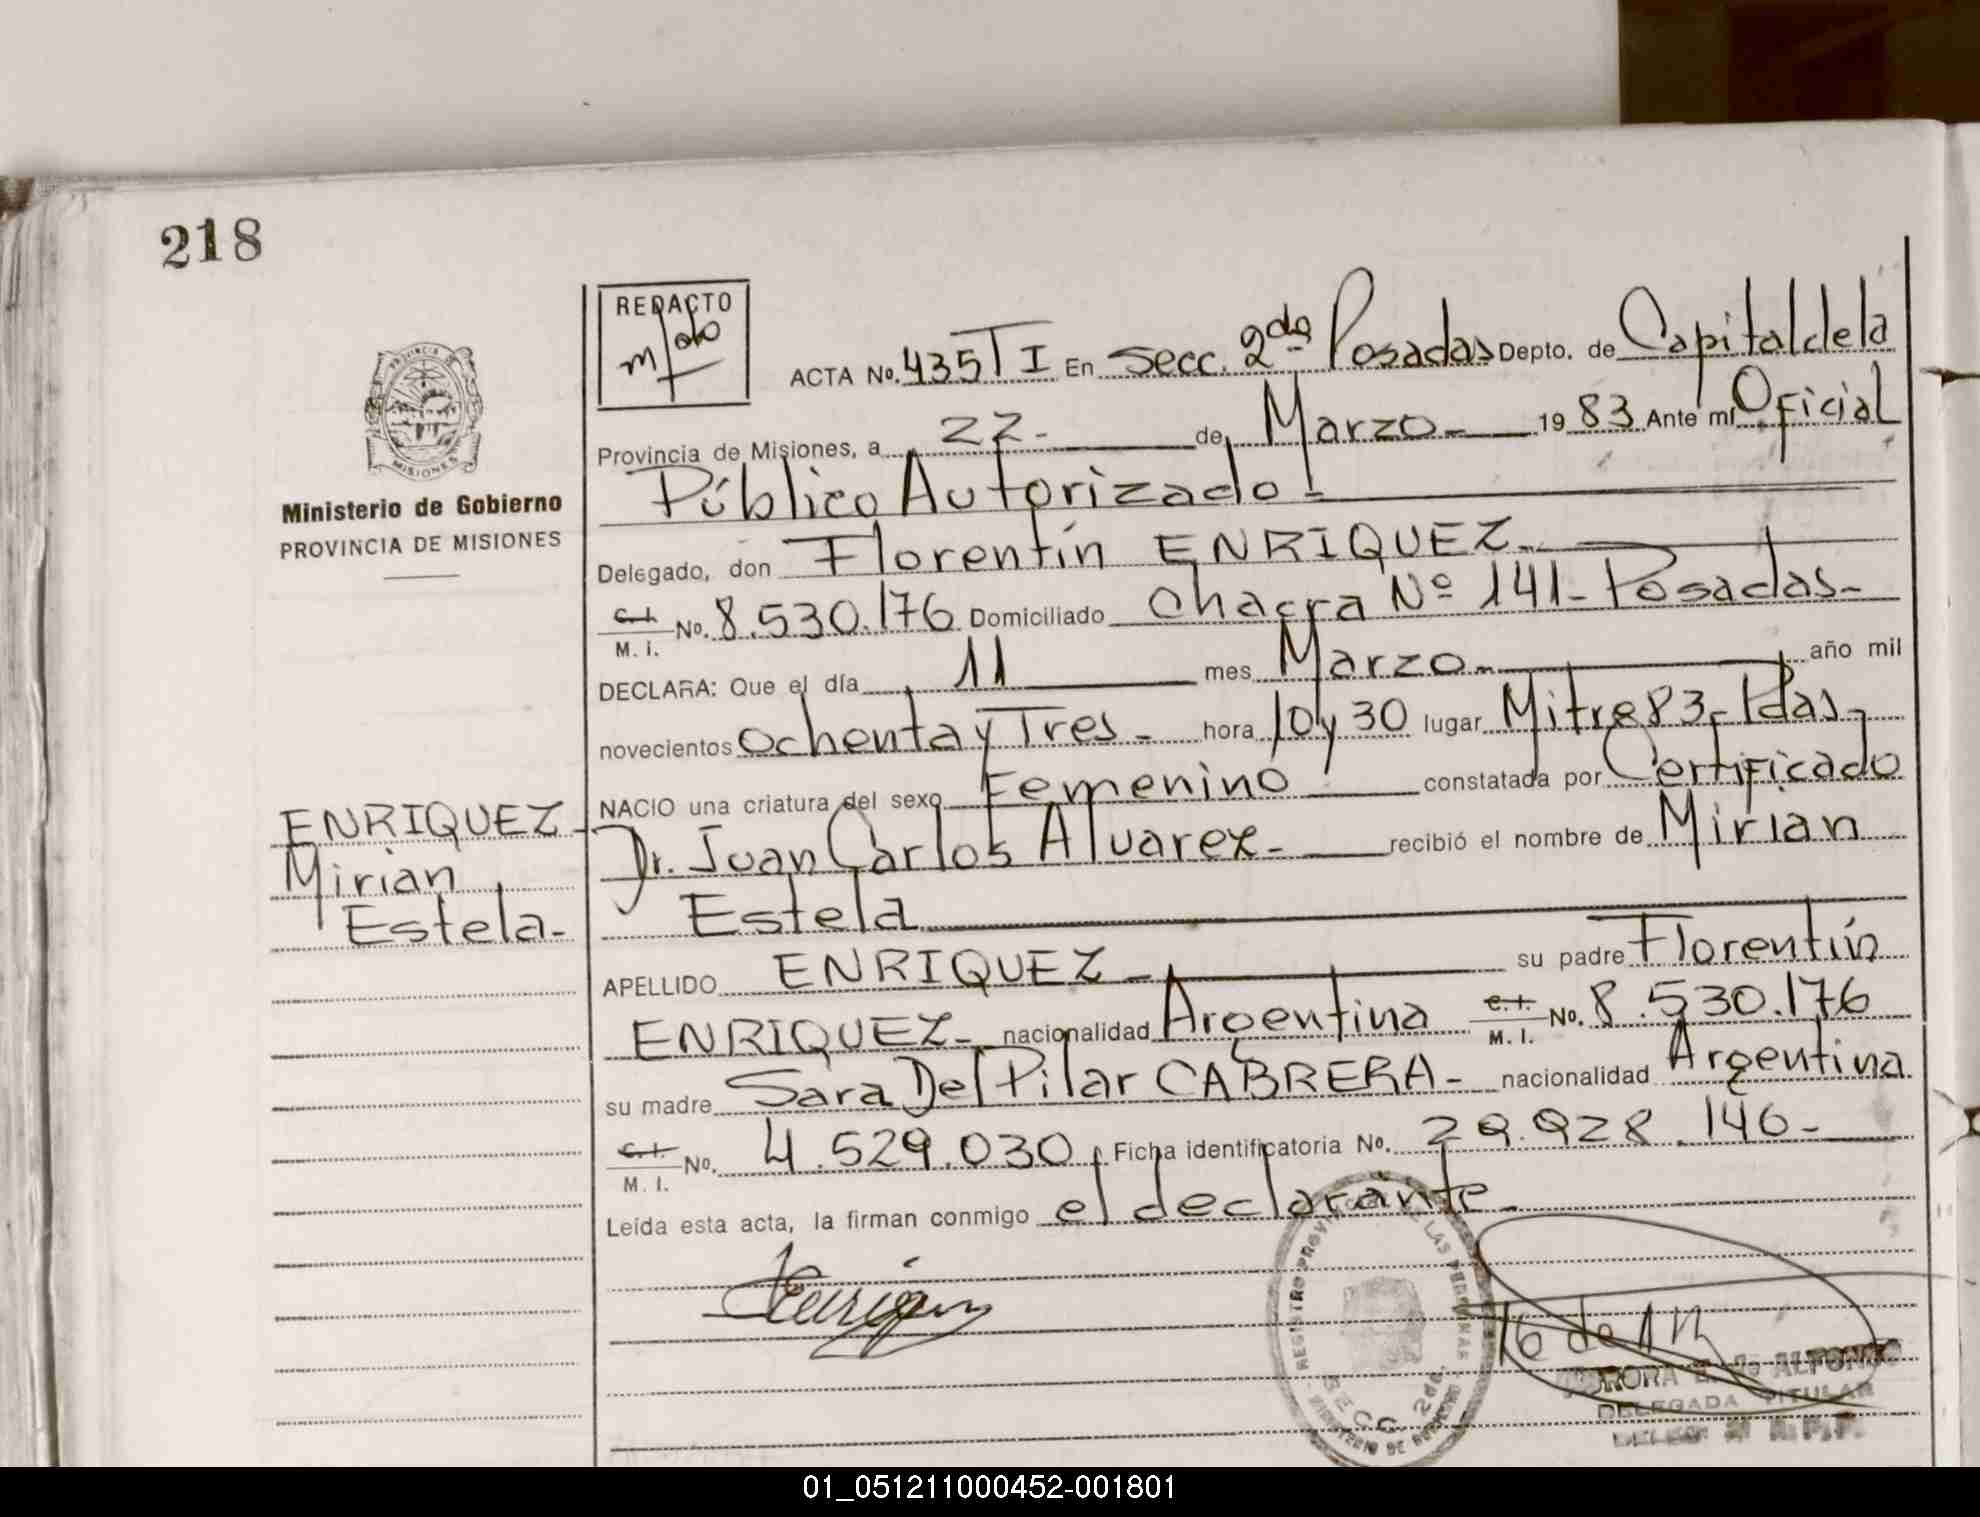 218
REDACTO
ACTA No. 435 T I En Secc. 2da Posadas Depto. de Capital de la
Provincia de Misiones, a 22- de Marzo- 1983 Ante mí Oficial
Público Autorizado-
PROVINCIA DE
MISIONES
Ministerio de Gobierno
PROVINCIA DE MISIONES
Delegado, don Florentín ENRIQUEZ-
C.I. M. I. No. 8.530.176 Domiciliado Chacra Nº 141- Posadas-
DECLARA: Que el día 11 mes Marzo- año mil
novecientos ochenta y Tres- hora 10 y 30 lugar Mitre 83- Pdas-
NACIO una criatura del sexo Femenino constatada por Certificado
ENRIQUEZ-
Mirian
Estela-
Dr. Juan Carlos Alvarez- recibió el nombre de Mirian
Estela
APELLIDO ENRIQUEZ- su padre Florentín
ENRIQUEZ- nacionalidad Argentina C.I. M. I. No. 8.530.176
su madre Sara Del Pilar CABRERA- nacionalidad Argentina
C.I. M. I. No. 4.529.030 Ficha identificatoria No. 29.928.146-
Leída esta acta, la firman conmigo el declarante-
REGISTRO PROVINCIAL DE LAS PERSONAS
SECC. 2da.
MINISTERIO DE GOBIERNO
ALFONSO
DELEGADA TITULAR
01_051211000452-001801